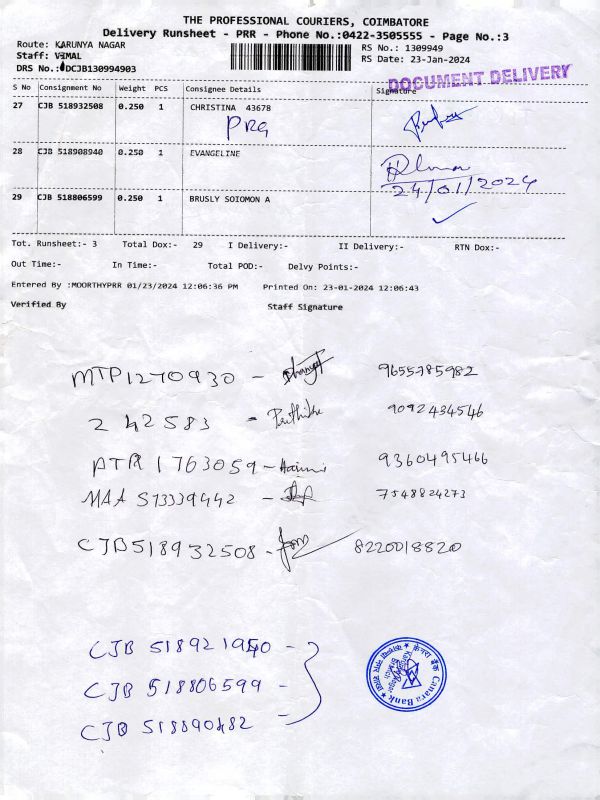 THE PROFESSIONAL COURIERS, COIMBATORE
Delivery Runsheet - PRR - Phone No.:0422-3505555 - Page No.:3
Route: KARUNYA NAGAR
RS No.: 1309949
Staff: VIMAL
RS Date: 23-Jan-2024
DRS No.: DCJB130994903
DOCUMENT DELIVERY
S No Consignment No Weight PCS Consignee Details Signature
27 CJB 518932508 0.250 1 CHRISTINA 43678
PRG
28 CJB 518908940 0.250 1 EVANGELINE
24/01/2024
29 CJB 518806599 0.250 1 BRUSLY SOIOMON A
Tot. Runsheet:- 3 Total Dox:- 29 I Delivery:- II Delivery:- RTN Dox:-
Out Time:- In Time:- Total POD:- Delvy Points:-
Entered By :MOORTHYPRR 01/23/2024 12:06:36 PM Printed On: 23-01-2024 12:06:43
Verified By Staff Signature
MTP1270930 - 9655785982
242583 - 9092434546
PTR 1763059 - 9360495466
MAA 573339442 - 7548824273
CJB518932508 - 8220018820
CJB 518921940 -
CJB 518806599 -
CJB 518890482
Canara Bank